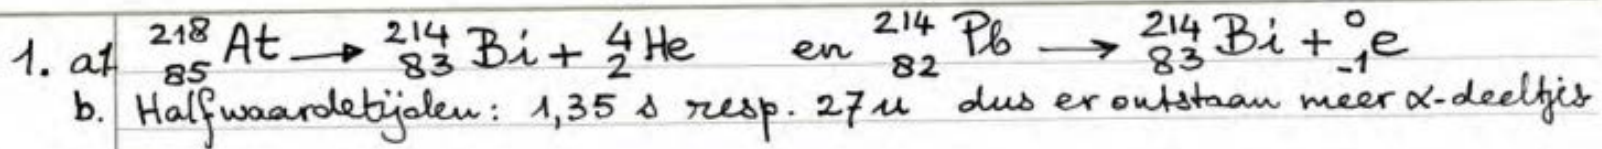 1. a1 ²¹⁸₈₅At → ²¹⁴₈₃Bi + ⁴₂He en ²¹⁴₈₂Pb → ²¹⁴₈₃Bi + ⁰₋₁e
b. Halfwaardetijden: 1,35 s resp. 27 u dus er ontstaan meer α-deeltjes